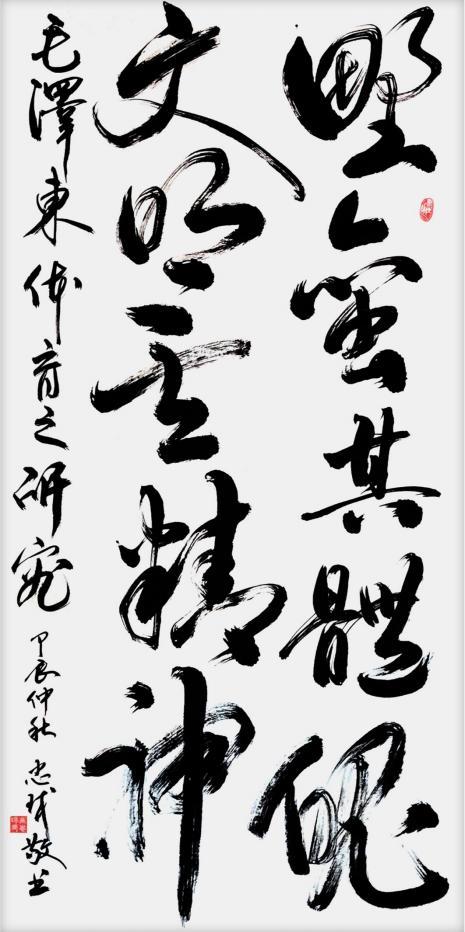 野蛮其體魄
文明其精神
毛澤東体育之研究
甲辰仲秋 忠 敬书